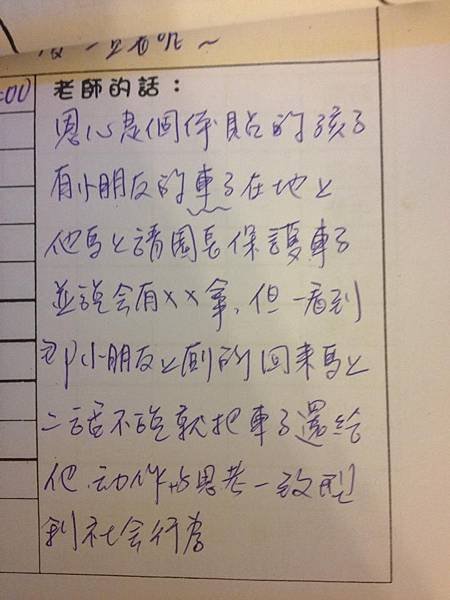 一旦有呢～
:00
老師的話：
恩心是個体貼的孩子
有小朋友的車子在地上
他馬上請園長保護車子
並説会有××拿，但一看到
那小朋友上廁所回来馬上
二話不說就把車子還給
他．动作与思考一致
到社会行為